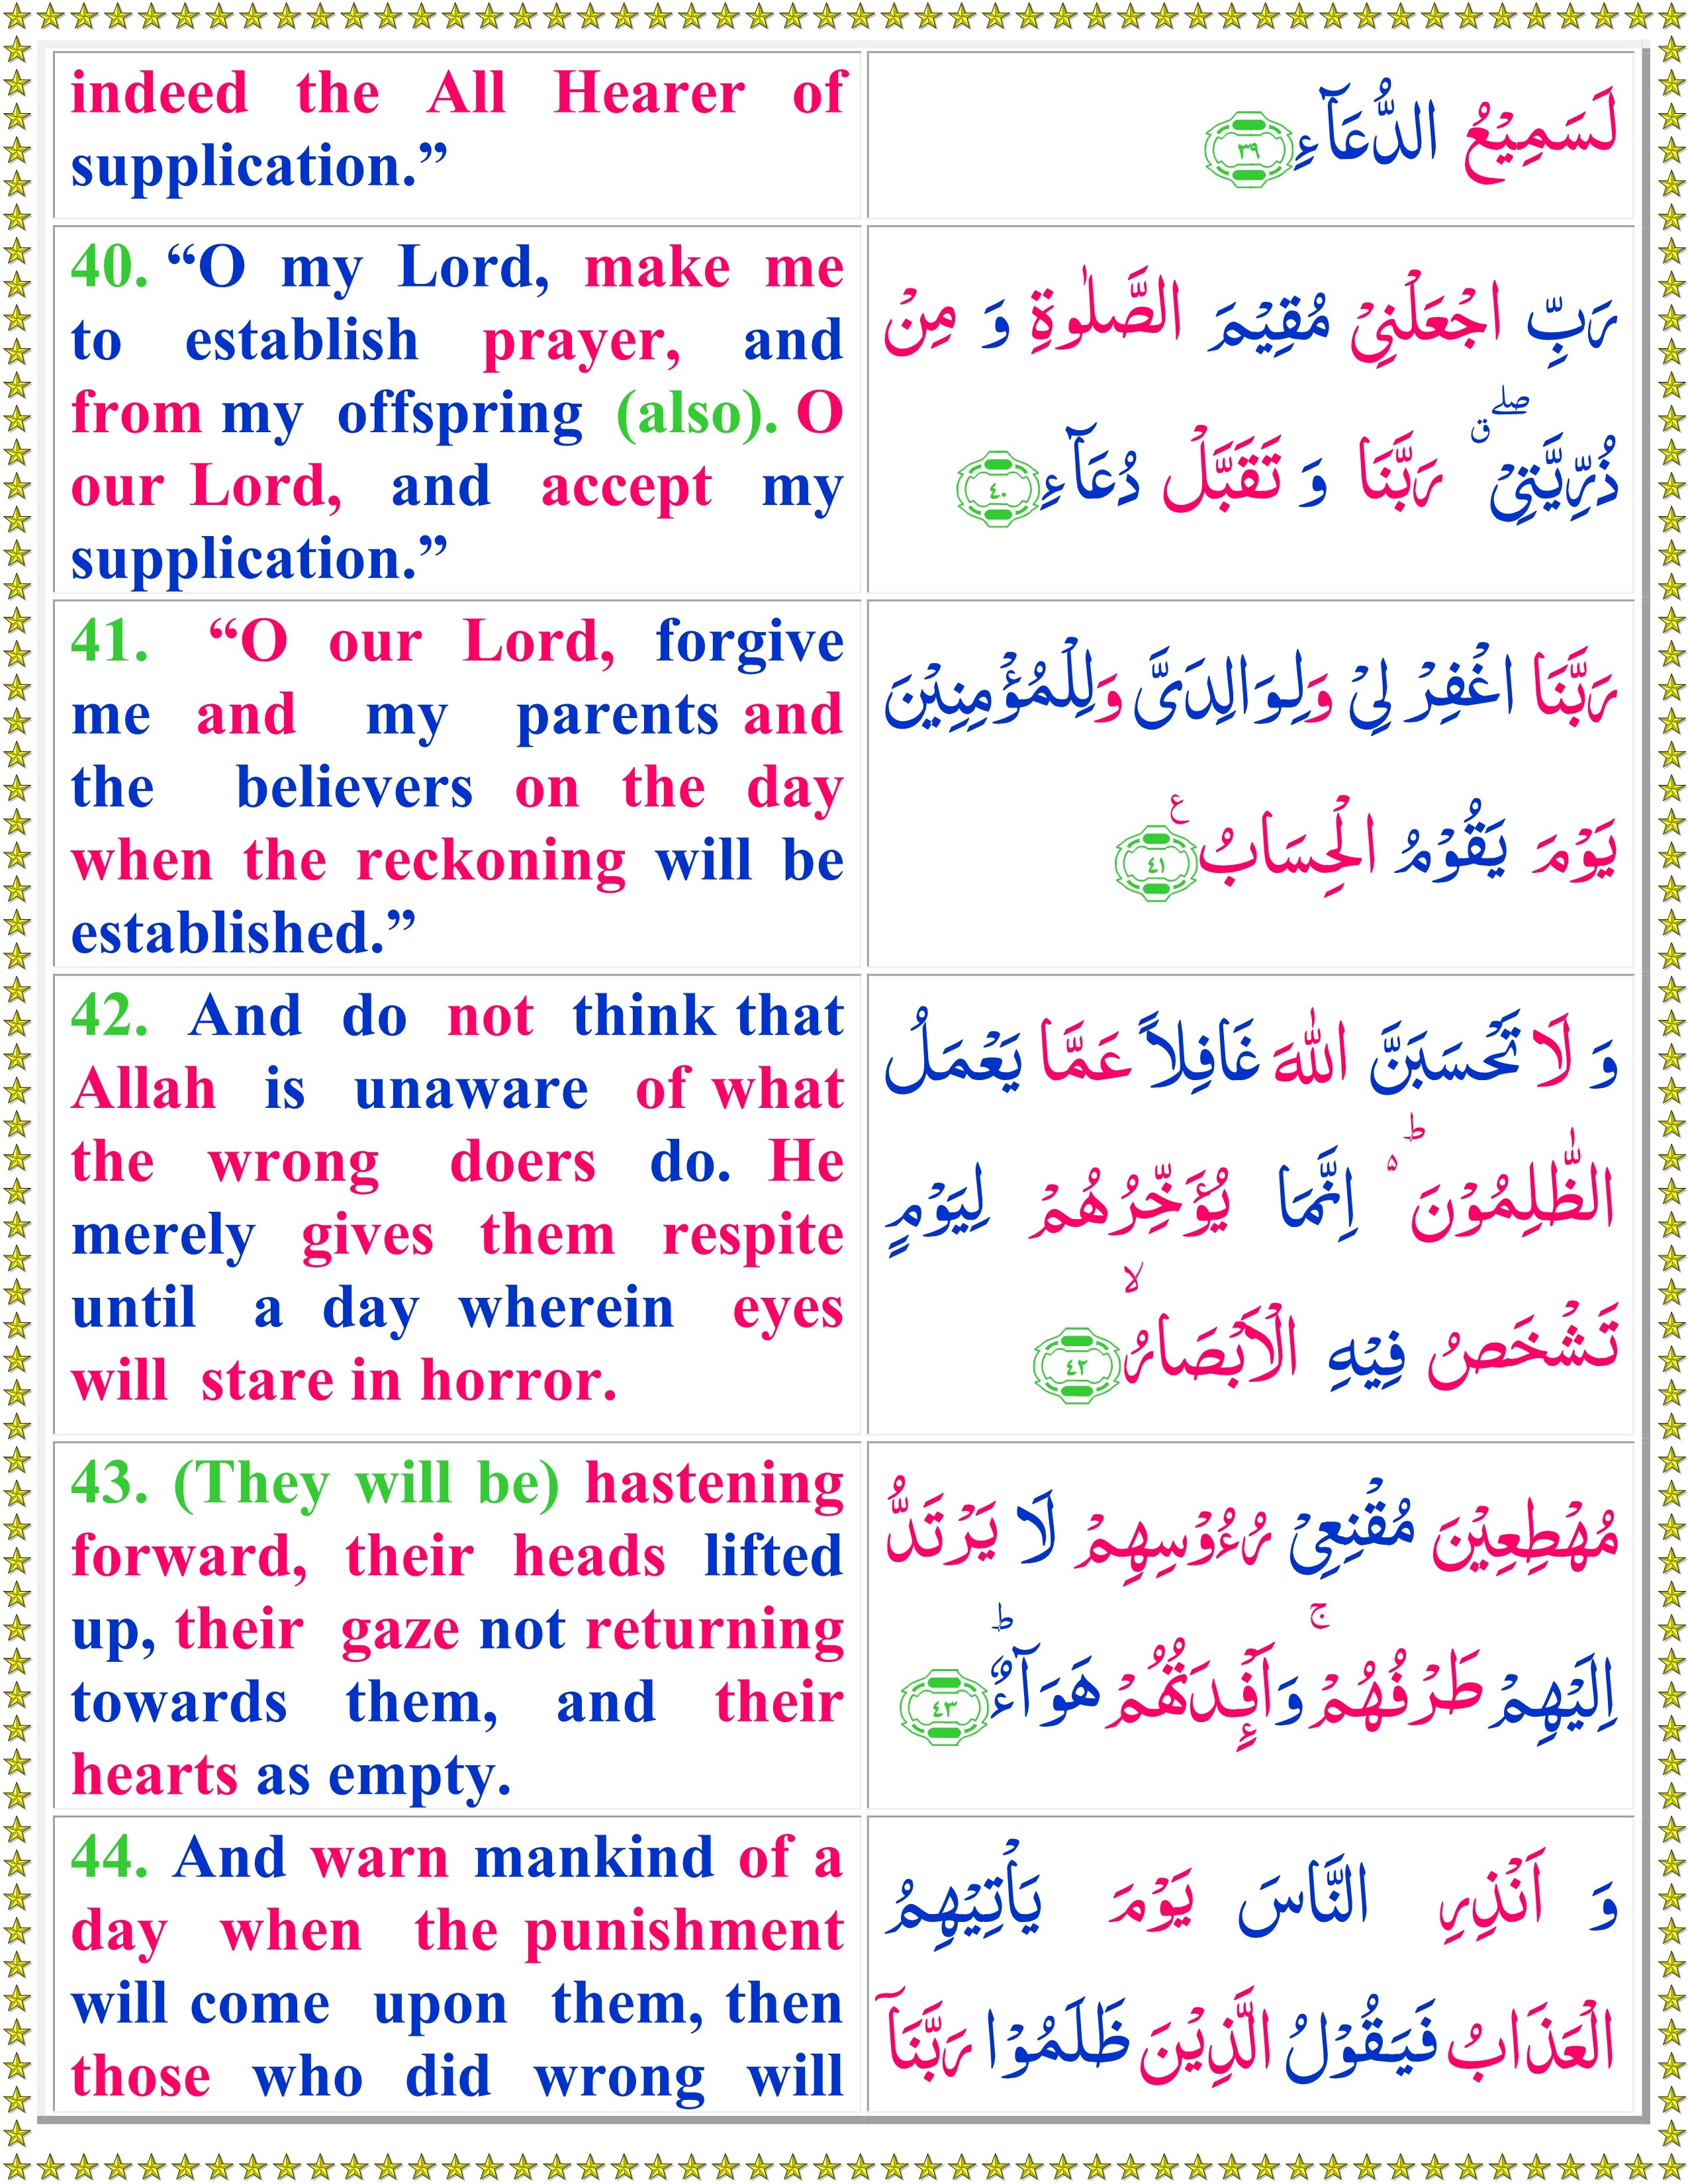 indeed the All Hearer of
supplication.”
لَسَمِيْعُ الدُّعَآءِ ﴿٣٩﴾
40. “O my Lord, make me
to establish prayer, and
from my offspring (also). O
our Lord, and accept my
supplication.”
رَبِّ اجْعَلْنِيْ مُقِيْمَ الصَّلٰوةِ وَ مِنْ
ذُرِّيَّتِيْ ۖۗ رَبَّنَا وَ تَقَبَّلْ دُعَآءِ ﴿٤٠﴾
41. “O our Lord, forgive
me and my parents and
the believers on the day
when the reckoning will be
established.”
رَبَّنَا اغْفِرْ لِيْ وَلِوَالِدَيَّ وَلِلْمُؤْمِنِيْنَ
يَوْمَ يَقُوْمُ الْحِسَابُ ع ﴿٤١﴾
42. And do not think that
Allah is unaware of what
the wrong doers do. He
merely gives them respite
until a day wherein eyes
will stare in horror.
وَ لَا تَحْسَبَنَّ اللّٰهَ غَافِلًا عَمَّا يَعْمَلُ
الظّٰلِمُوْنَ ؕ۬ اِنَّمَا يُؤَخِّرُهُمْ لِيَوْمٍ
تَشْخَصُ فِيْهِ الْاَبْصَارُ ۙ ﴿٤٢﴾
43. (They will be) hastening
forward, their heads lifted
up, their gaze not returning
towards them, and their
hearts as empty.
مُهْطِعِيْنَ مُقْنِعِيْ رُءُوْسِهِمْ لَا يَرْتَدُّ
اِلَيْهِمْ طَرْفُهُمْ ۚ وَاَفْـِٕدَتُهُمْ هَوَآءٌ ؕ ﴿٤٣﴾
44. And warn mankind of a
day when the punishment
will come upon them, then
those who did wrong will
وَ اَنْذِرِ النَّاسَ يَوْمَ يَاْتِيْهِمُ
الْعَذَابُ فَيَقُوْلُ الَّذِيْنَ ظَلَمُوْا رَبَّنَاۤ